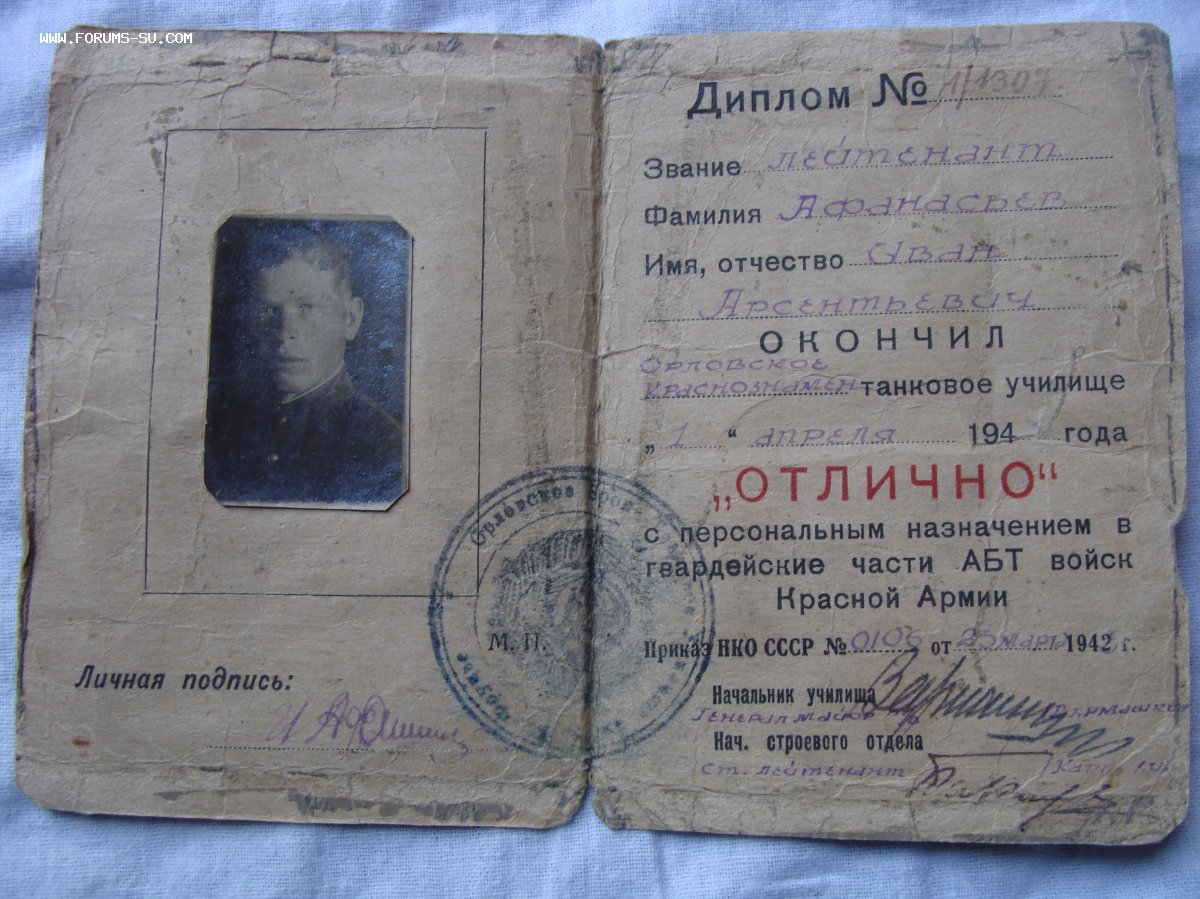 WWW.FORUMS-SU.COM
М. П.
Личная подпись:
Диплом № 1/1307
Звание лейтенант
Фамилия Афанасьев
Имя, отчество Иван
Арсентьевич
ОКОНЧИЛ
Орловское
Краснознамен танковое училище
„1“ апреля 194 года
„ОТЛИЧНО“
с персональным назначением в
гвардейские части АБТ войск
Красной Армии
Приказ НКО СССР № 0106 от 25 марта 1942 г.
Начальник училища
Генерал майор т/в
Нач. строевого отдела
Ст. лейтенант
Орловское